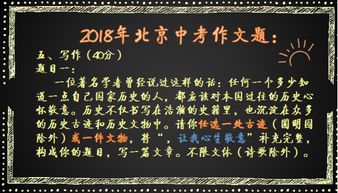 2018年北京中考作文题：
五、写作（40分）
题目一：
一位著名学者曾经说过这样的话：任何一个多少知
道一点自己国家历史的人，都应该对本国过往的历史心
怀敬意。历史不仅书写在浩瀚的史籍里，也沉淀在众多
的历史古迹和历史文物中。请你任选一处古迹（圆明园
除外）或一件文物，将“，让我心生敬意”补充完整，
构成你的题目，写一篇文章。不限文体（诗歌除外）。